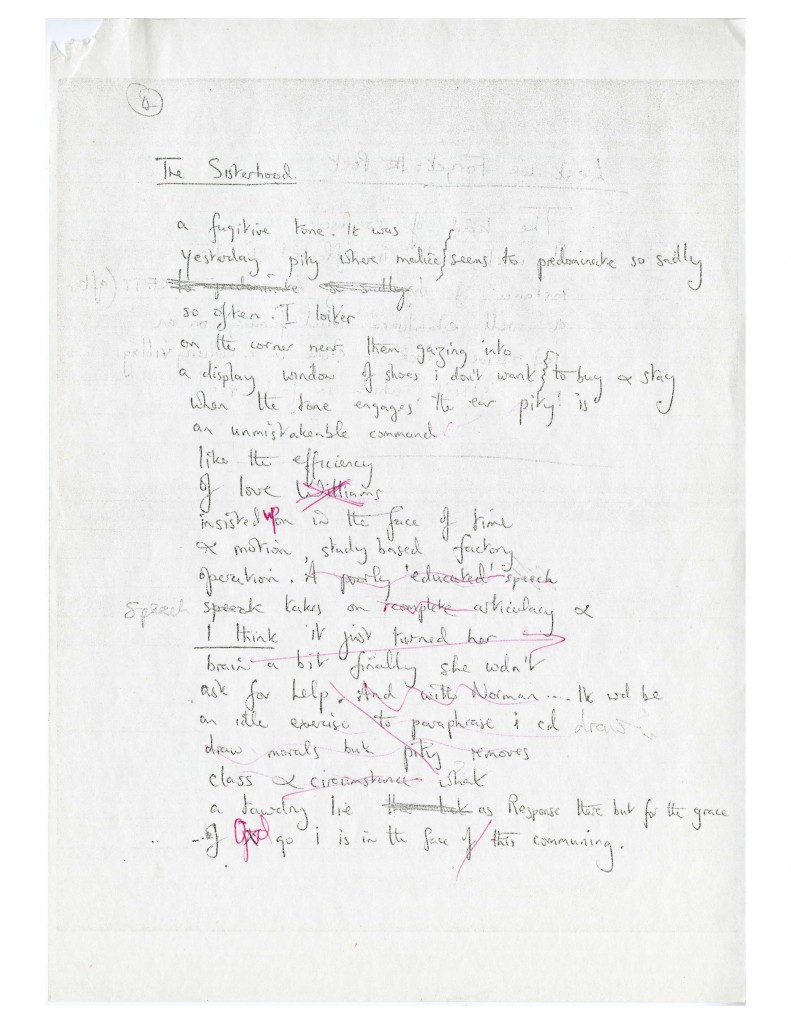 4
The Sisterhood.
a fugitive tone. It was
yesterday pity where malice } seems to predominate so sadly
to predominate so sadly
so often. I loiter
on the corner near them gazing into
a display window of shoes i don't want } to buy & stay
when the tone engages the ear pity is
an unmistakeable command
like the efficiency
of love Williams
insisted upon in the face of time
& motion, study based factory
operation. A poorly 'educated' speech
Speech speak takes on complete articulacy &
I think it just turned her
brain a bit finally she wdn't
ask for help. And with Norman.... It wd be
an idle exercise to paraphrase i cd draw
draw morals but pity removes
class & circumstance what
a tawdry lie as Response there but for the grace
of God go i is in the face of this communing.